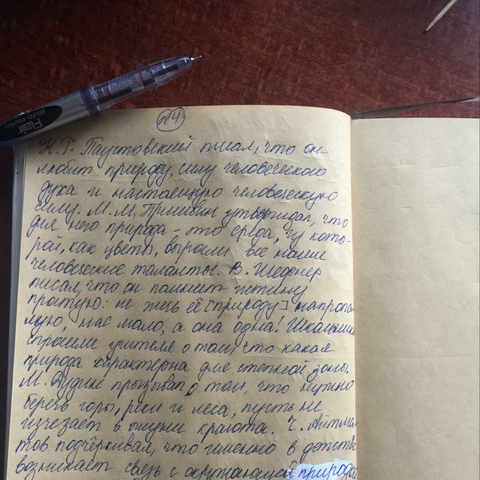 №4
К.Г. Паустовский писал, что он
любит природу, силу человеческого
духа и настоящую человеческую
силу. М.М. Пришвин утверждал, что
для него природа - это среда, из кото-
рой, как цветы, выросли все наши
человеческие таланты. В. Шефнер
писал, что он помнит истину
простую: не жги её [природу] напропа-
лую, нас мало, а она одна! Школьники
спросили учителя о том, что какая
природа характерна для степной зоны.
М. Дудин призывал о том, что нужно
беречь горы, реки и леса, пусть не
изчезает в вышин красота. Ч. Айтма-
тов подчёркивал, что именно в детстве
возникает связь с окружающей природой
Flair
Writo-meter